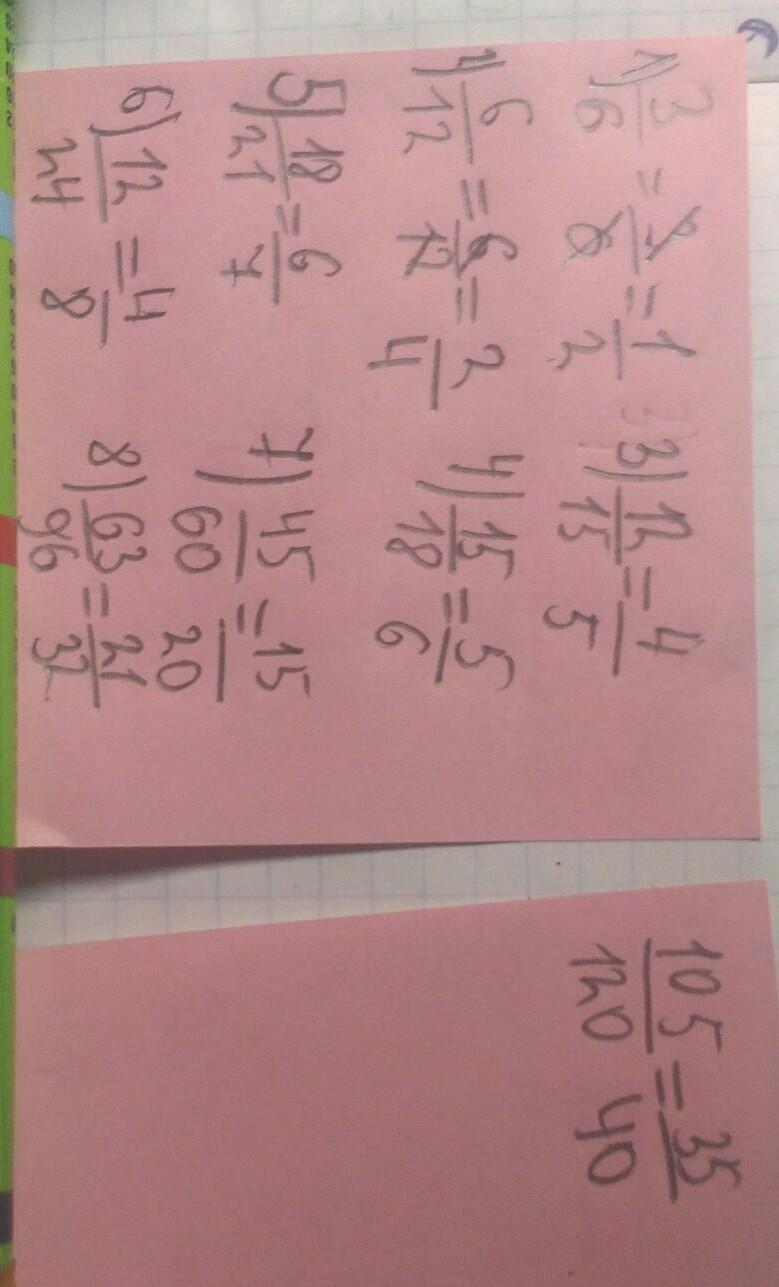 1) 3/6 = 3/6 = 1/2 3) 12/15 = 4/5
2) 6/12 = 6/12 = 2/4 4) 15/18 = 5/6
5) 18/21 = 6/7 7) 45/60 = 15/20
6) 12/24 = 4/8 8) 63/96 = 21/32
105/120 = 35/40